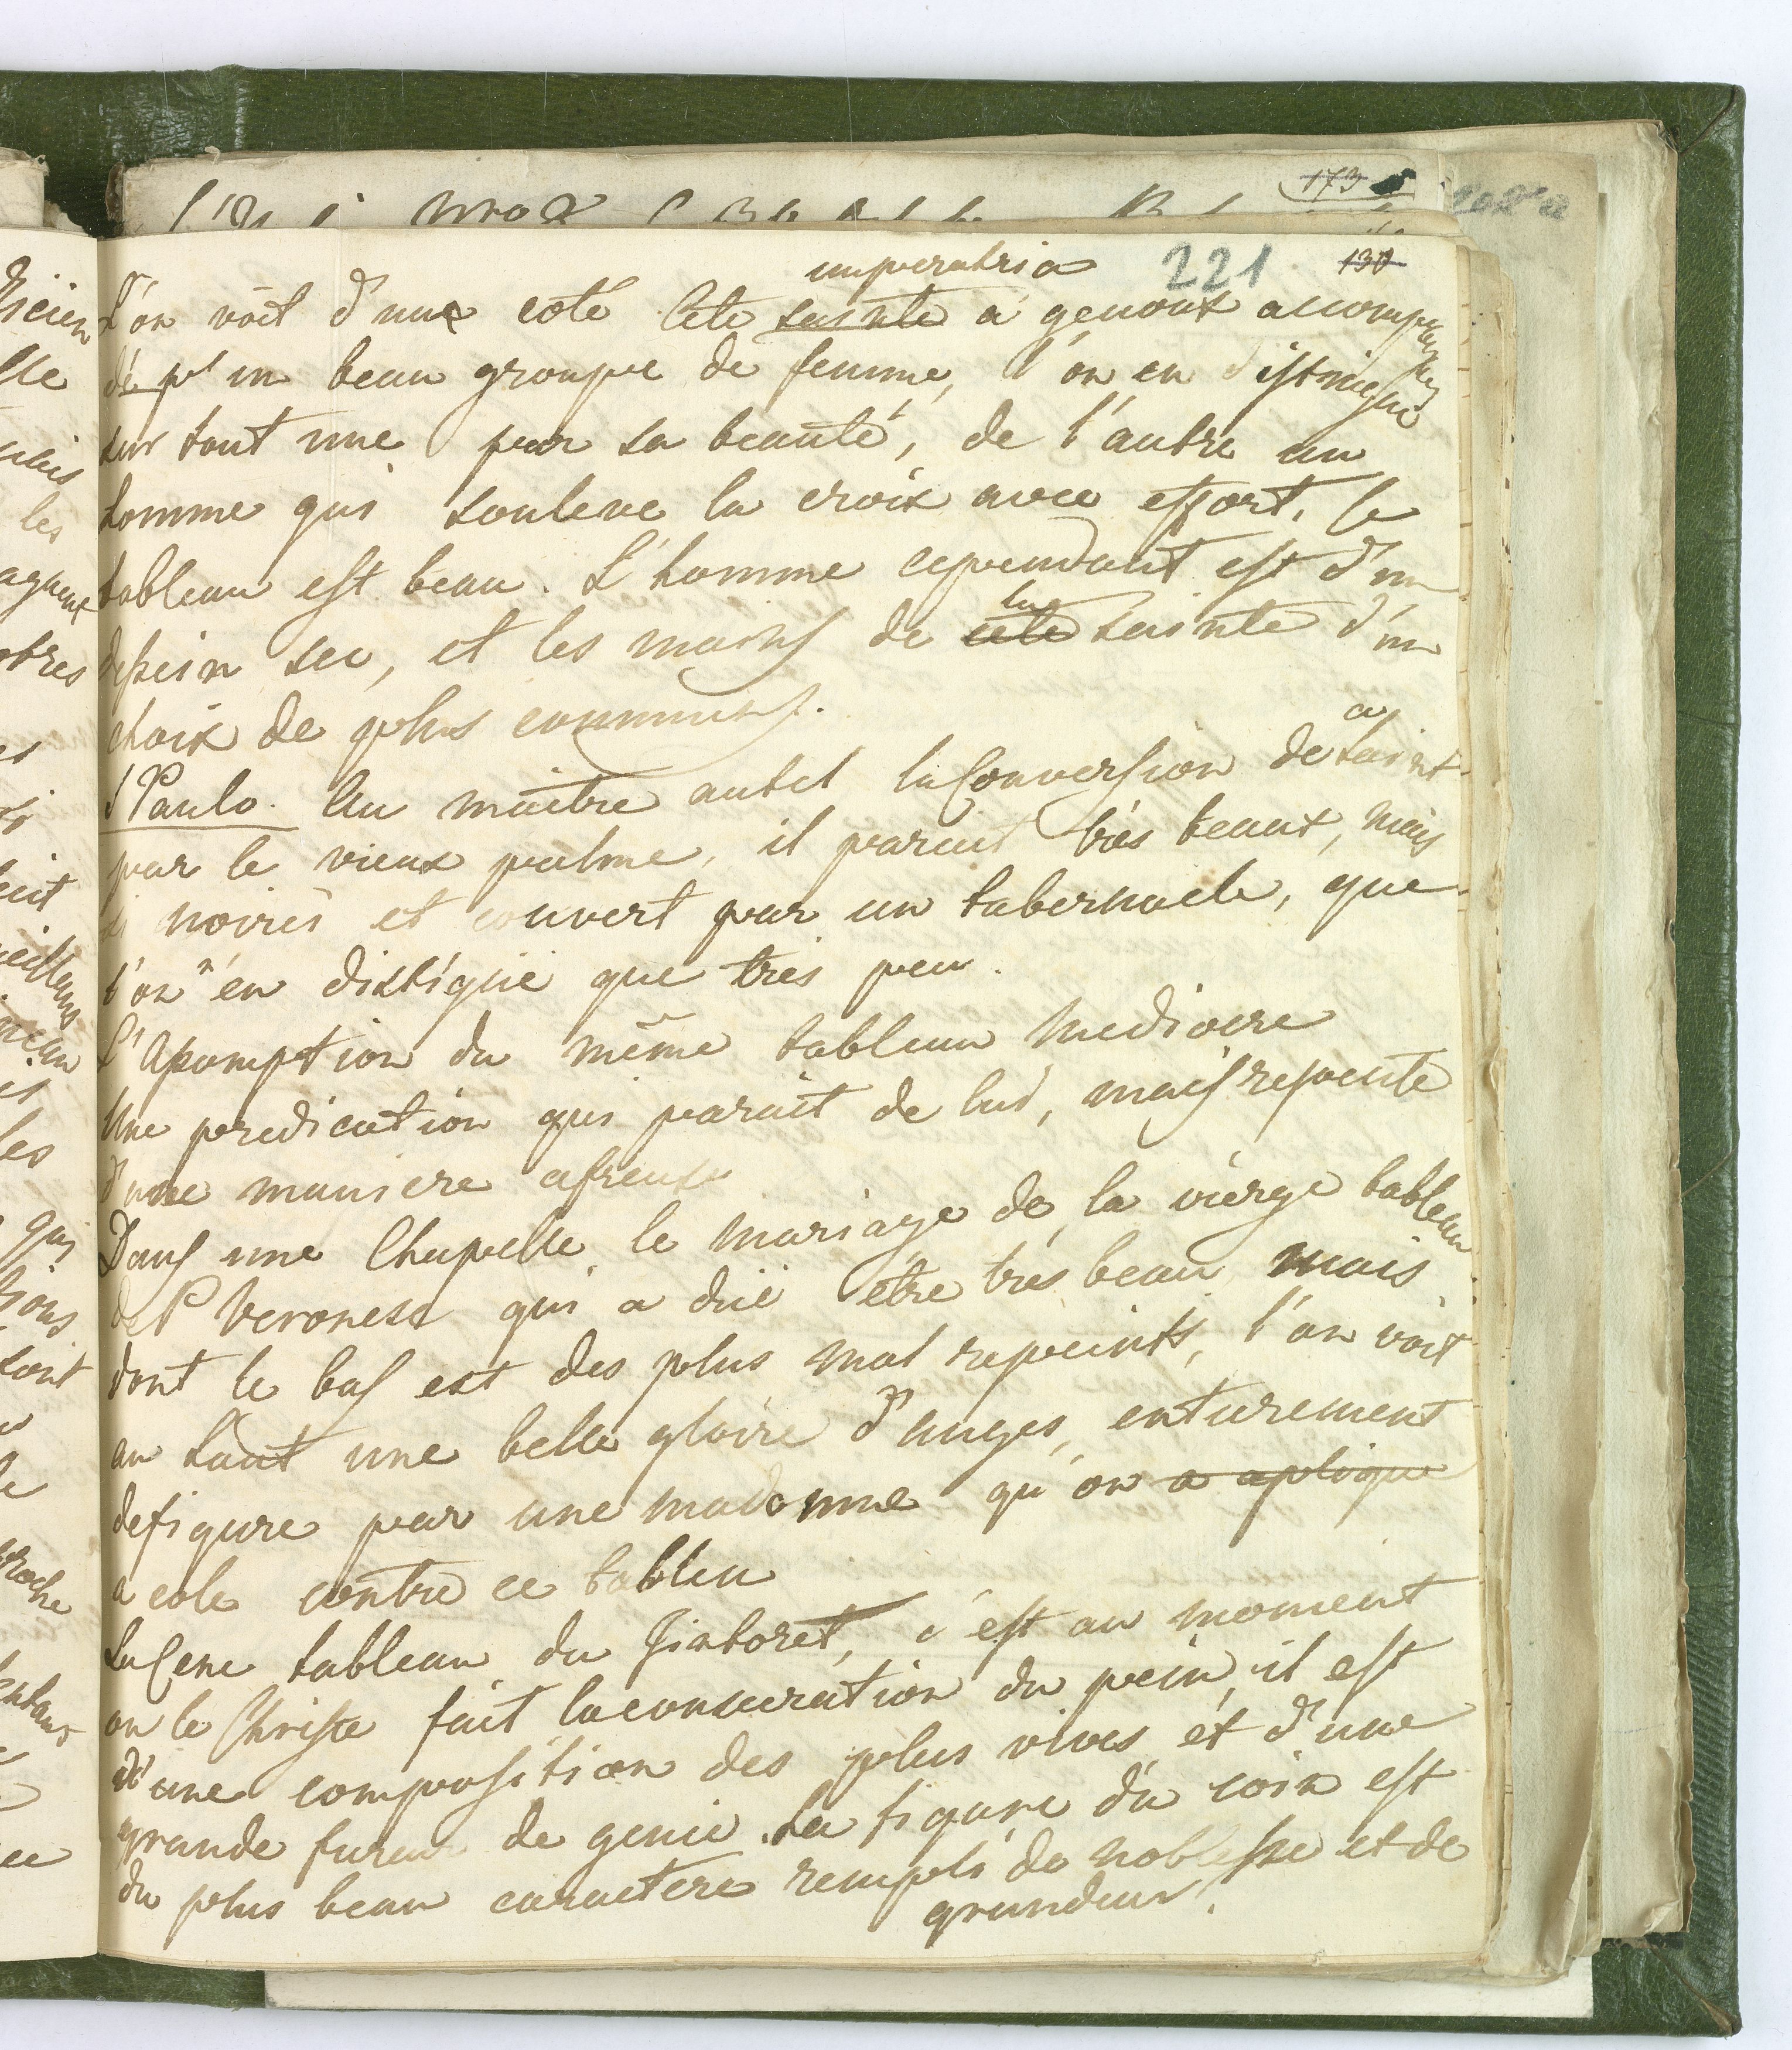 173
202 a
221
130
imperatrice
L'on voit d'une coté cete sainte a genoux accompagnez
de pr un beau groupe de femme, l'on en distingue
sur tout une par sa beauté, de l'autre un
homme qui souleve la croix avec effort, le
tableau est beau. L'homme cependant est d'un
la
dessein sec, et les mains de cete sainte d'un
choix de plus communs.
a
S Paulo. Au maitre autel la Conversion de saint
par le vieux palme, il parait très beaux, mais
si noires et couvert par un tabernacle, que
l'on n'en distigue que très peu.
L'Assomption du même tableau mediocre
Une predication qui parait de lui, mais repeente
d'une maniere afreuse
Dans une Chapelle le mariage de la vierge tableau
de P Veronese qui a due être très beau mais
dont le bas est des plus mal repeints, l'on voit
au haut une belle gloire d'anges, entierement
defigure par une madonne qu'on a aplique
a cole contre ce tableu
La Cene tableau du Tintoret, c'est au moment
ou le Christe fait la consecration du pein, il est
d'une composition des plus vives et d'une
grande fureur de genie. La figure du coin est
du plus beau caractere rempli de noblesse et de
grandeur.